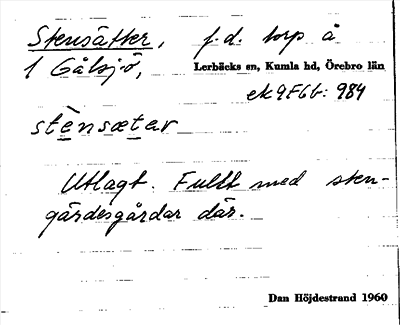 Stensätter, f.d. torp å
1 Gålsjö, Lerbäcks sn, Kumla hd, Örebro län
ek 9F6b: 984
stènsæ̀tar
Utlagt. Fullt med sten-
gärdesgårdar där.
Dan Höjdestrand 1960